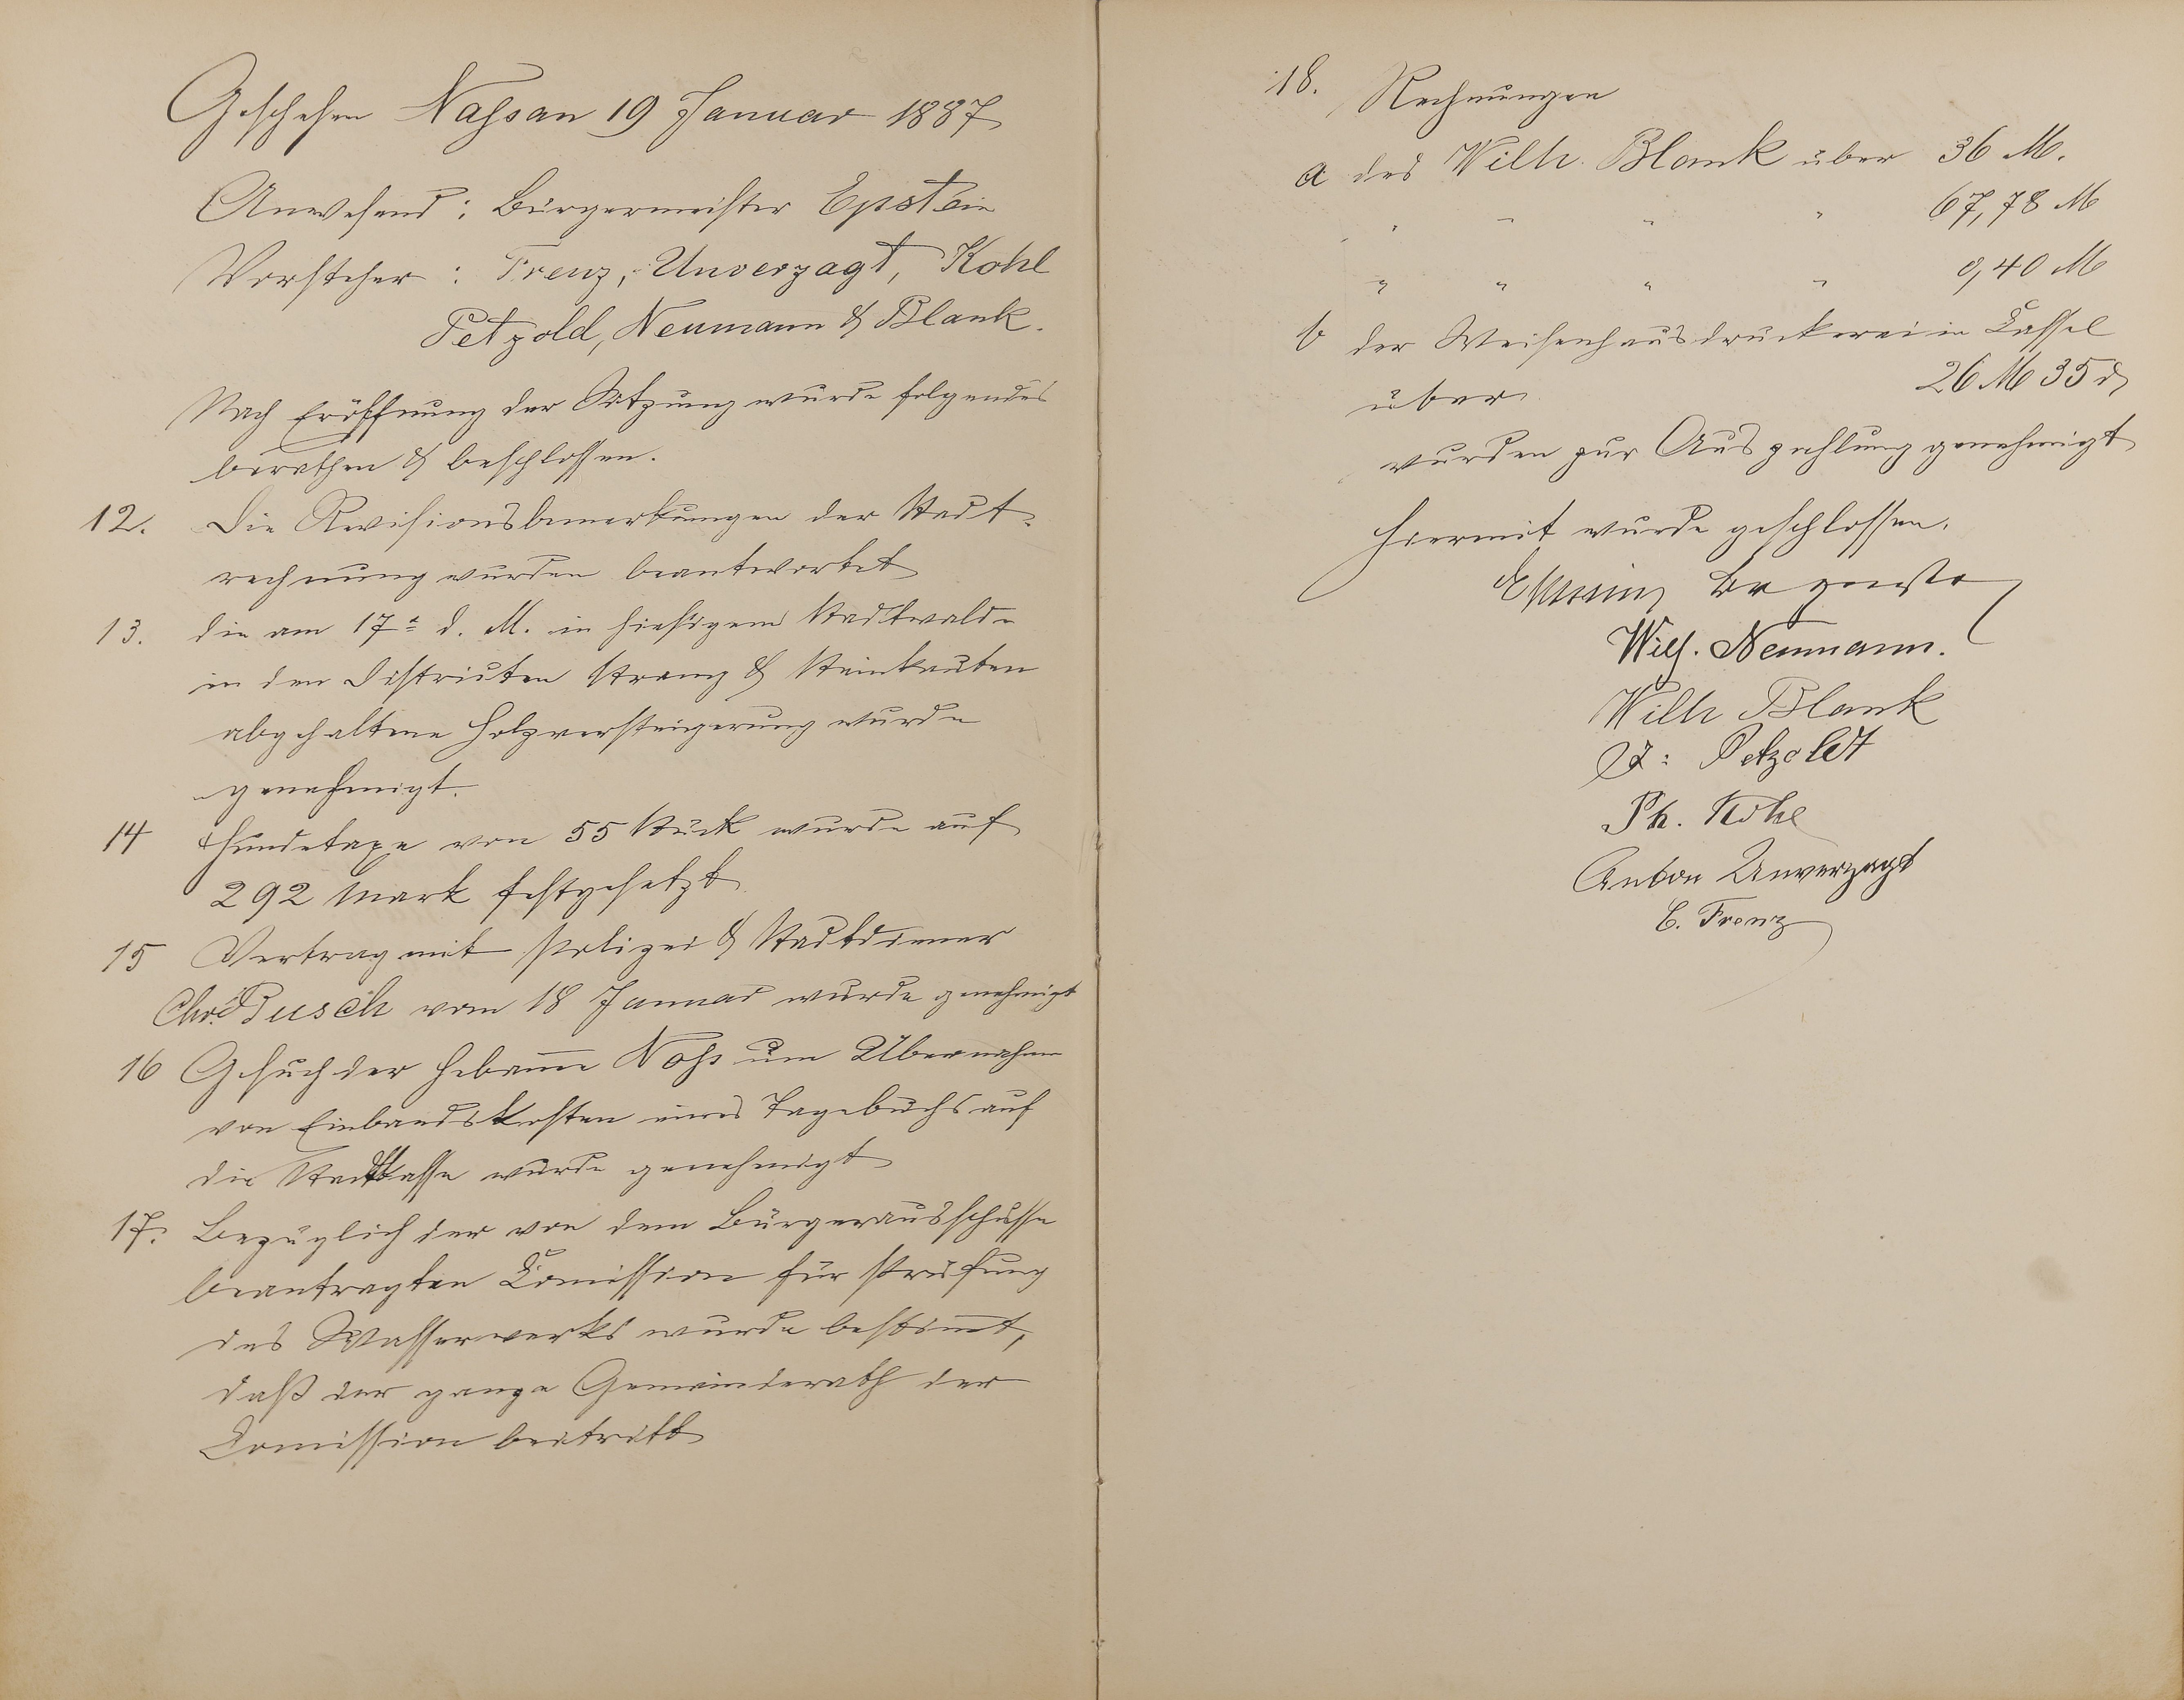 Geschehen Nassau 19 Januar 1887
Anwesend: Bürgermeister Epstein
Vorsteher: Trenz, Unverzagt, Kohl
Petzold, Neumann & Blank.
Nach Eröffnung der Sitzung wurde folgendes
berathen & beschlossen.
12. Die Revisionsbemerkungen der Stadt-
rechnung wurden beantwortet
13. die am 17n d. M. in hiesigem Stadtwalde
in den Distrikten Strang & Steinkauten
abgehaltene Holzversteigerung wurde
genehmigt.
14 Hundetaxe von 55 Stück wurde auf
292 Mark festgesetzt
15 Vertrag mit Polizei & Stadtdiener
Chr. Busch vom 18 Januar wurde genehmigt
16 Gesuch der Hebam̅e Noss um Übernahme
von Einbandskosten eines Tagebuchs auf
die Stadtkasse wurde genehmigt
17. Bezüglich der von dem Bürgerausschusse
beantragten Comission für Prüfung
des Wasserwerks wurde bestim̅t,
daß der ganze Gemeinderath der
Comission beitritt
18. Rechnungen
a des Wilh. Blank über 36 M.
" " " " 67,78 M
" " " " 0,40 M
b der Weisenhausdruckerei in Cassel
über 26 M 35 d
wurden zur Auszahlung genehmigt
Hiermit wurde geschlossen.
Wilh. Neumann.
Wilh Blank
Petzoldt
Ph. Kohl
Anton Unverzagt
C. Trenz